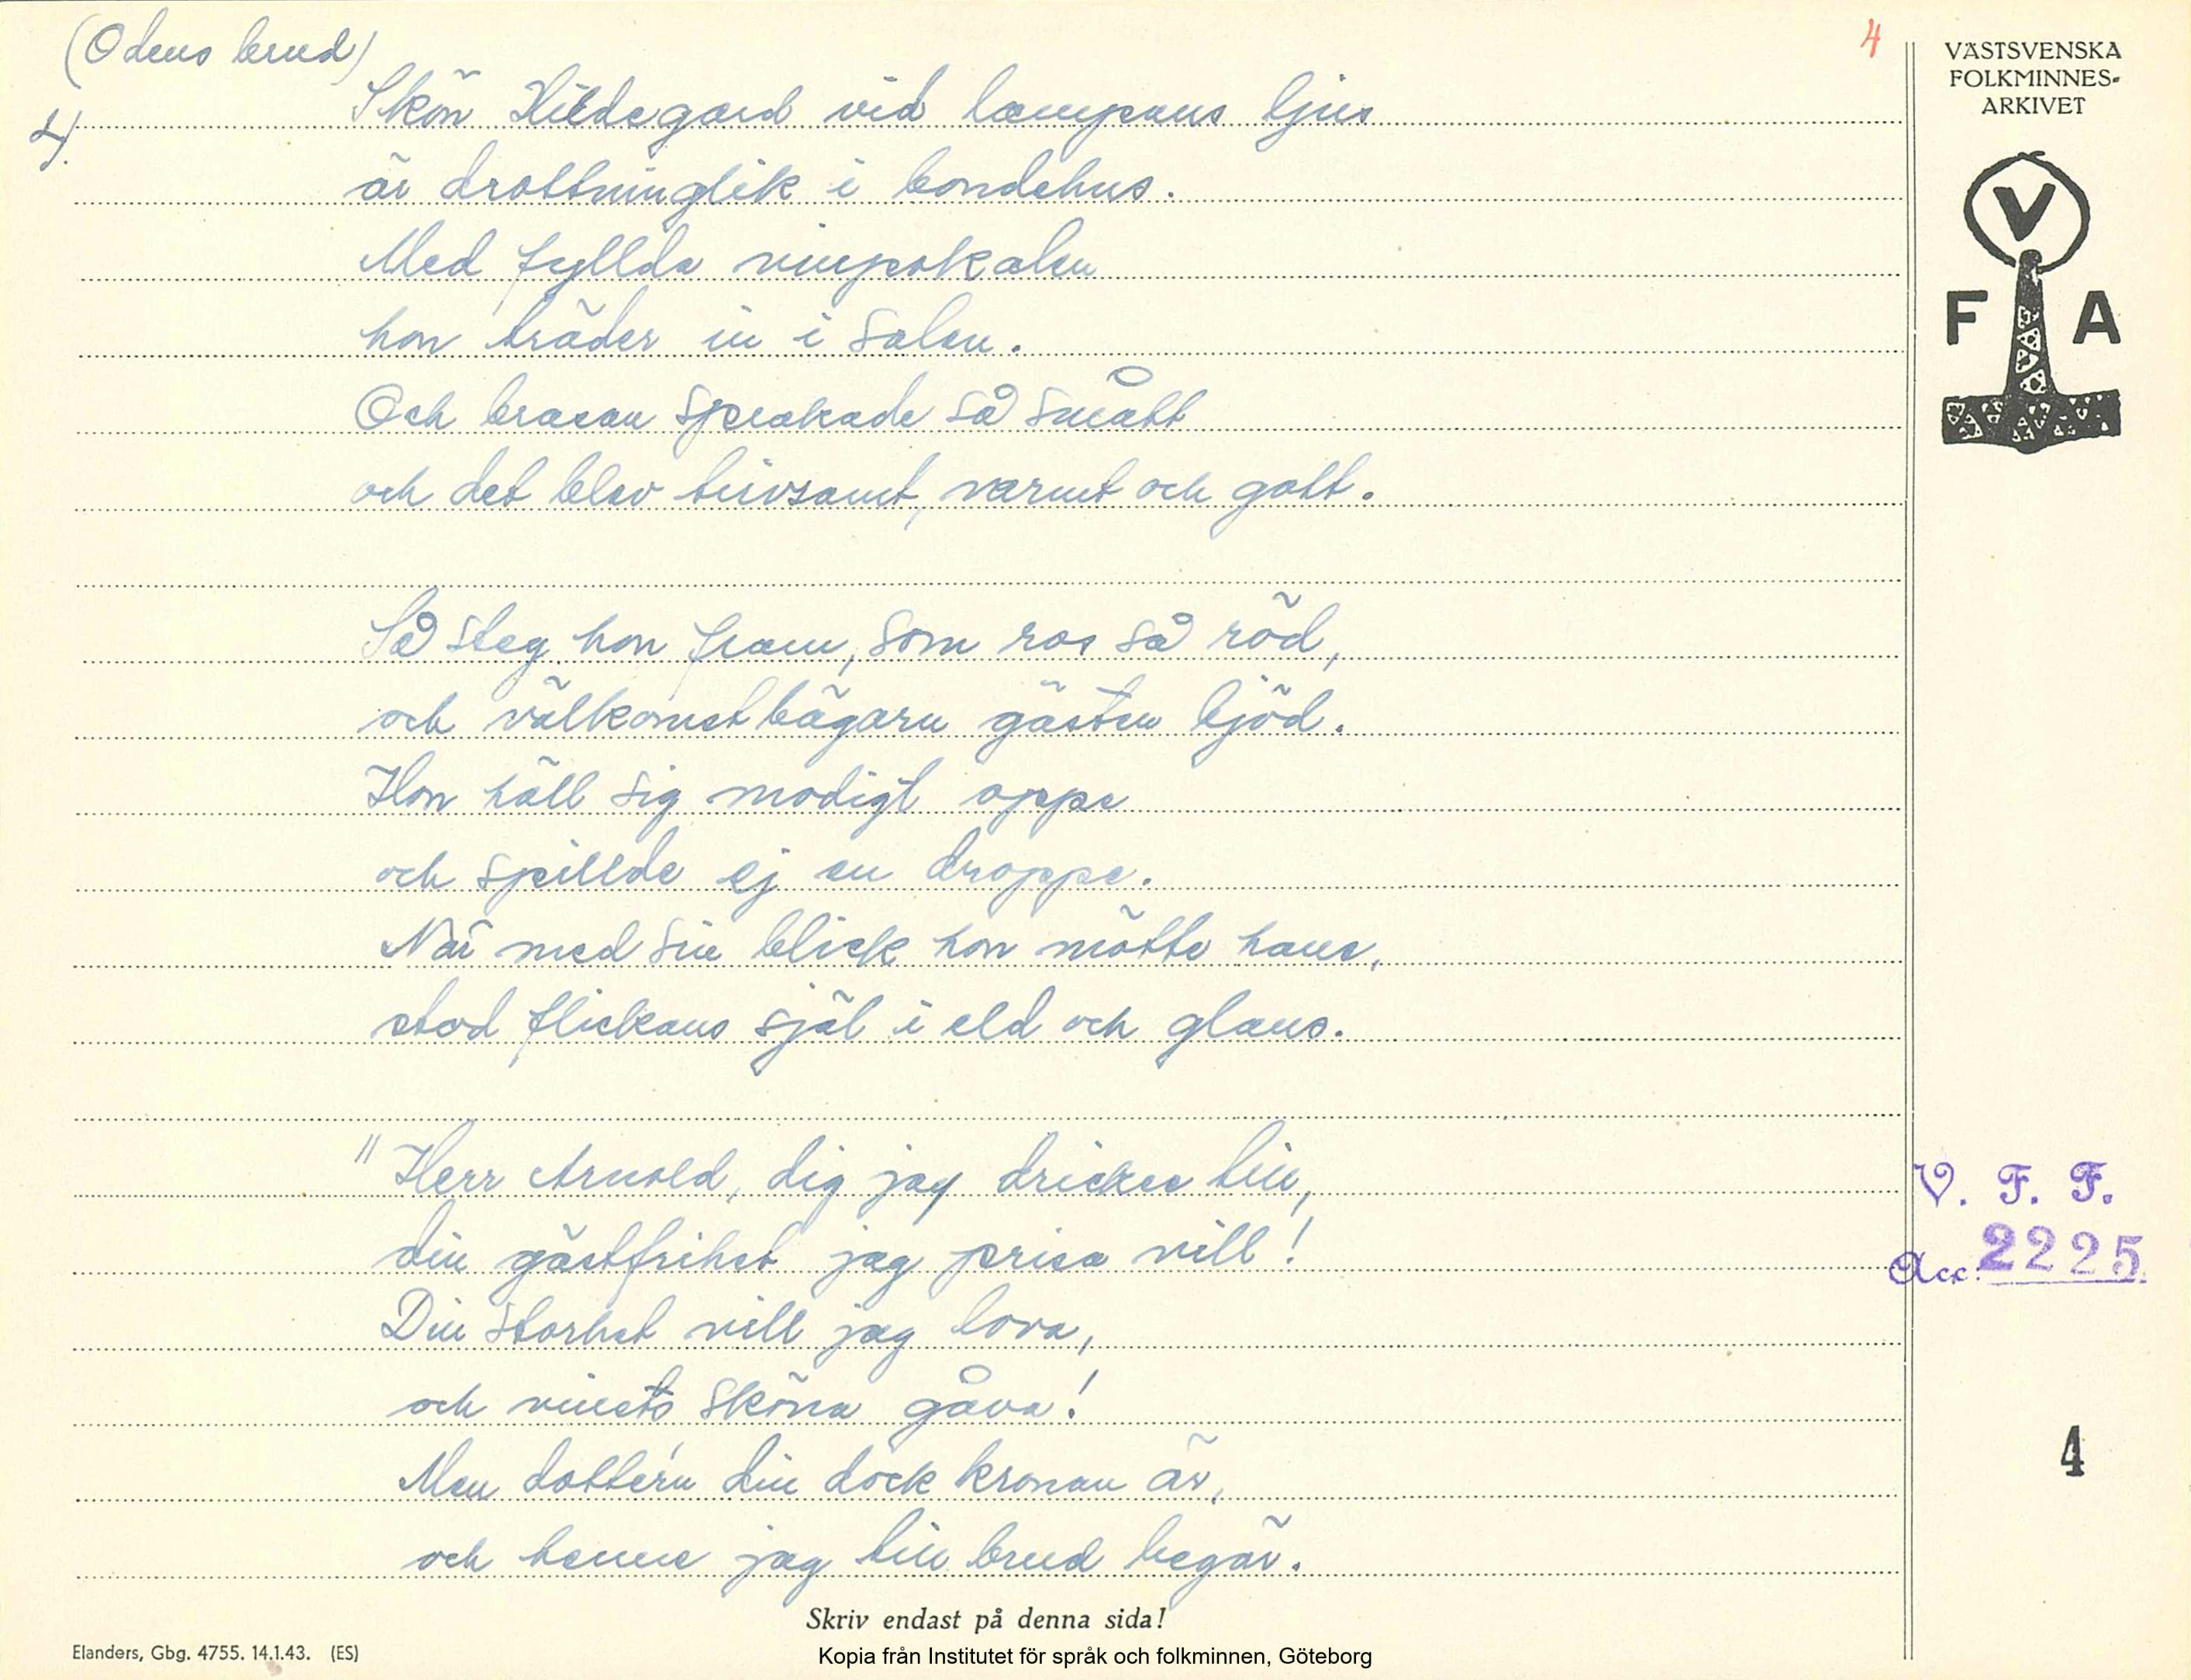 (Odens brud)
4
4).
Skön Hildegard vid lampans ljus
är drottninglik i bondehus.
Med fyllda vinpokalen
hon träder in i salen.
Och brasan sprakade så smått
och det blev trivsamt, varmt och gott.
Så steg hon fram, som ros så röd,
och välkomstbägarn gästen bjöd.
Hon höll sig modigt oppe
och spillde ej en droppe.
När med sin blick hon mötte hans,
stod flickans själ i eld och glans.
"Herr Arnold, dig jag dricker till,
din gästfrihet jag prisa vill!
Din storhet vill jag lova,
och vinets sköna gåva!
Men dotter'n din dock kronan är,
och henne jag till brud begär.
VÄSTSVENSKA
FOLKMINNES-
ARKIVET
V
F A
V. F. F.
Acc. 2225
4
Skriv endast på denna sida!
Elanders, Gbg. 4755. 14.1.43. (ES)
Kopia från Institutet för språk och folkminnen, Göteborg